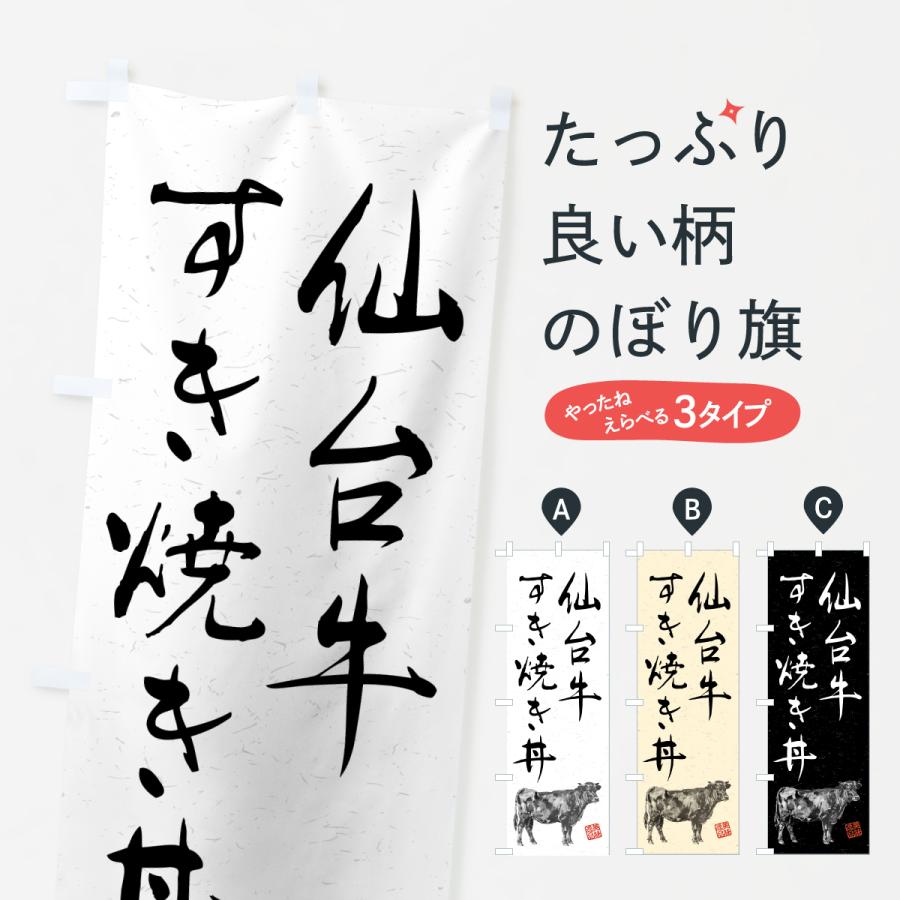 仙台牛
すき焼き丼
たっぷり
良い柄
のぼり旗
やったね
えらべる
3タイプ
A
B
C
仙台牛
すき焼き丼
仙台牛
すき焼き丼
仙台牛
すき焼き丼